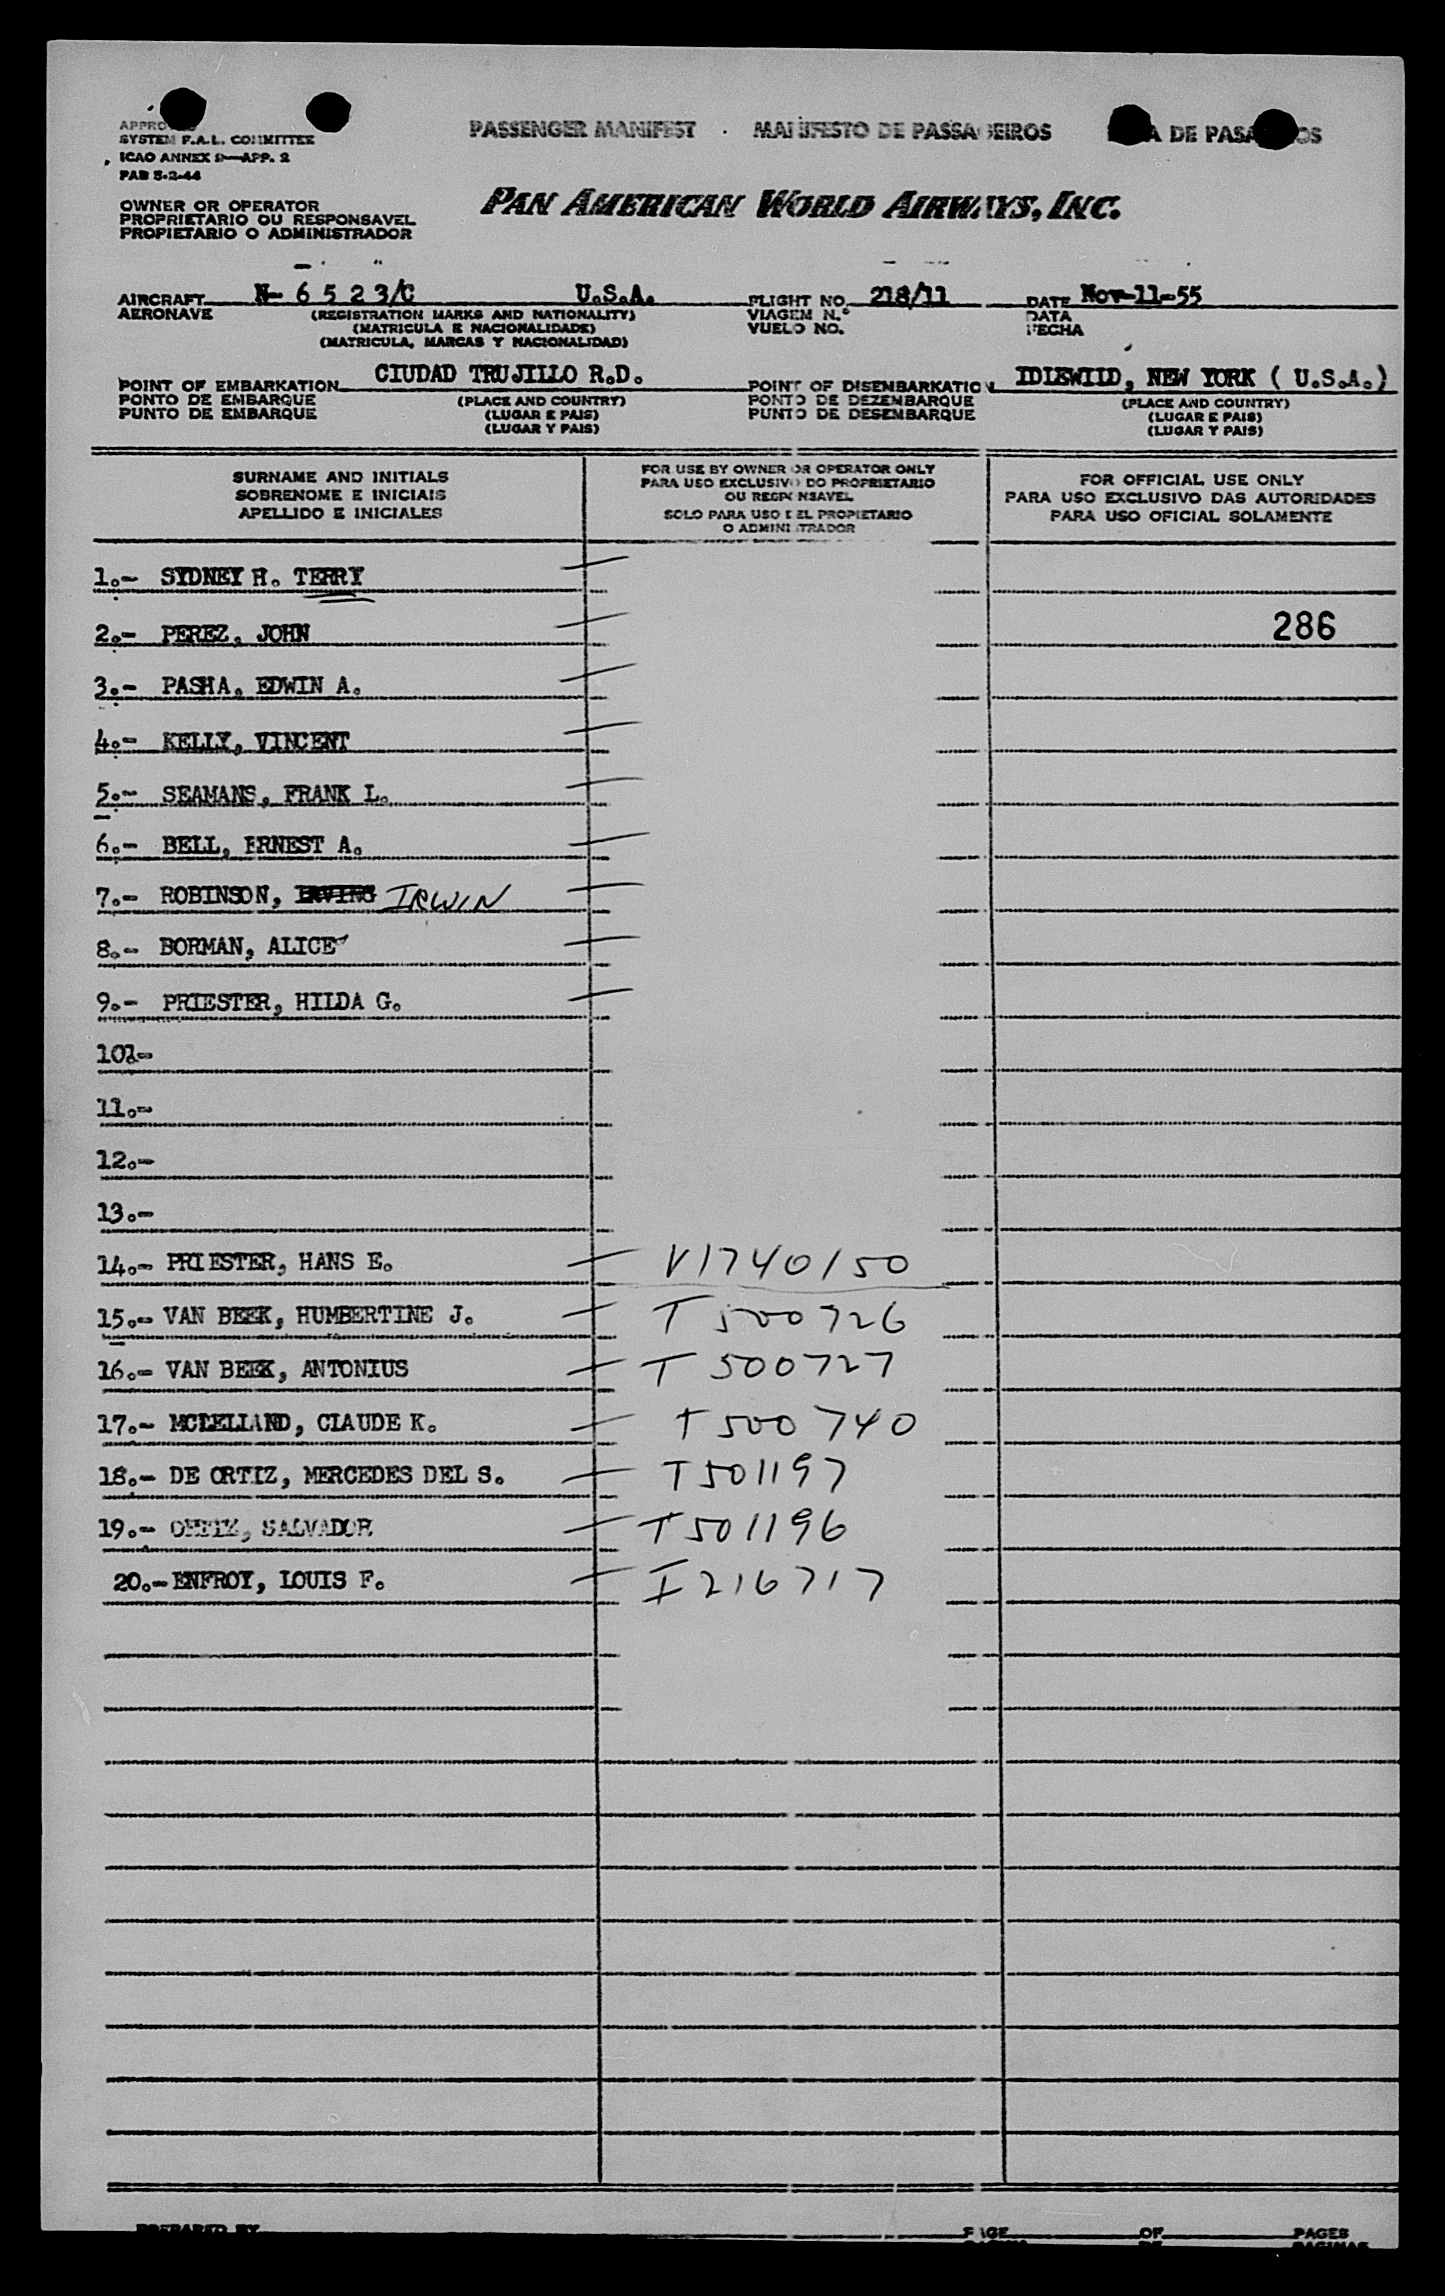 PASSENGER MANIFEST · MANIFESTO DE PASSAGEIROS DE
SYSTEM F.A.L. COMMITTEE
ICAO ANNEX 9—APP. 2
PAB 5-2-44
OWNER OR OPERATOR
PROPRIETARIO OU RESPONSAVEL
PROPIETARIO O ADMINISTRADOR
PAN AMERICAN WORLD AIRWAYS, INC.
AIRCRAFT N- 6 5 2 3/C U.S.A. FLIGHT NO. 218/11 DATE Nov-11-55
AERONAVE (REGISTRATION MARKS AND NATIONALITY) VIAGEM N.º DATA
(MATRICULA E NACIONALIDADE) VUELO NO. FECHA
(MATRICULA, MARCAS Y NACIONALIDAD)
POINT OF EMBARKATION CIUDAD TRUJILLO R.D. POINT OF DISEMBARKATION IDLEWILD, NEW YORK ( U.S.A.)
PONTO DE EMBARQUE (PLACE AND COUNTRY) PONTO DE DEZEMBARQUE (PLACE AND COUNTRY)
PUNTO DE EMBARQUE (LUGAR E PAIS) PUNTO DE DESEMBARQUE (LUGAR E PAIS)
(LUGAR Y PAIS) (LUGAR Y PAIS)
SURNAME AND INITIALS
SOBRENOME E INICIAIS
APELLIDO E INICIALES
FOR USE BY OWNER OR OPERATOR ONLY
PARA USO EXCLUSIVO DO PROPRIETARIO
OU RESPONSAVEL
SOLO PARA USO DEL PROPIETARIO
O ADMINISTRADOR
FOR OFFICIAL USE ONLY
PARA USO EXCLUSIVO DAS AUTORIDADES
PARA USO OFICIAL SOLAMENTE
1.- SYDNEY H. TERRY
2.- PEREZ, JOHN 286
3.- PASHA, EDWIN A.
4.- KELLY, VINCENT
5.- SEAMANS, FRANK L.
6.- BELL, ERNEST A.
7.- ROBINSON, IRVING IRWIN
8.- BORMAN, ALICE
9.- PRIESTER, HILDA G.
10.-
11.-
12.-
13.-
14.- PRIESTER, HANS E. V1740150
15.- VAN BEEK, HUMBERTINE J. T 500726
16.- VAN BEEK, ANTONIUS T 500727
17.- MCLELLAND, CLAUDE K. T500 740
18.- DE ORTIZ, MERCEDES DEL S. T501197
19.- ORTIZ, SALVADOR T501196
20.- ENFROY, LOUIS F. I 216717
PREPARED BY PAGE OF PAGES